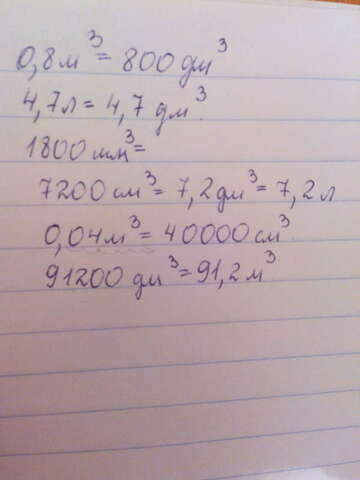 0,8 м³ = 800 дм³
4,7 л = 4,7 дм³.
1800 мм³ =
7200 см³ = 7,2 дм³ = 7,2 л
0,04 м³ = 40000 см³.
91200 дм³ = 91,2 м³